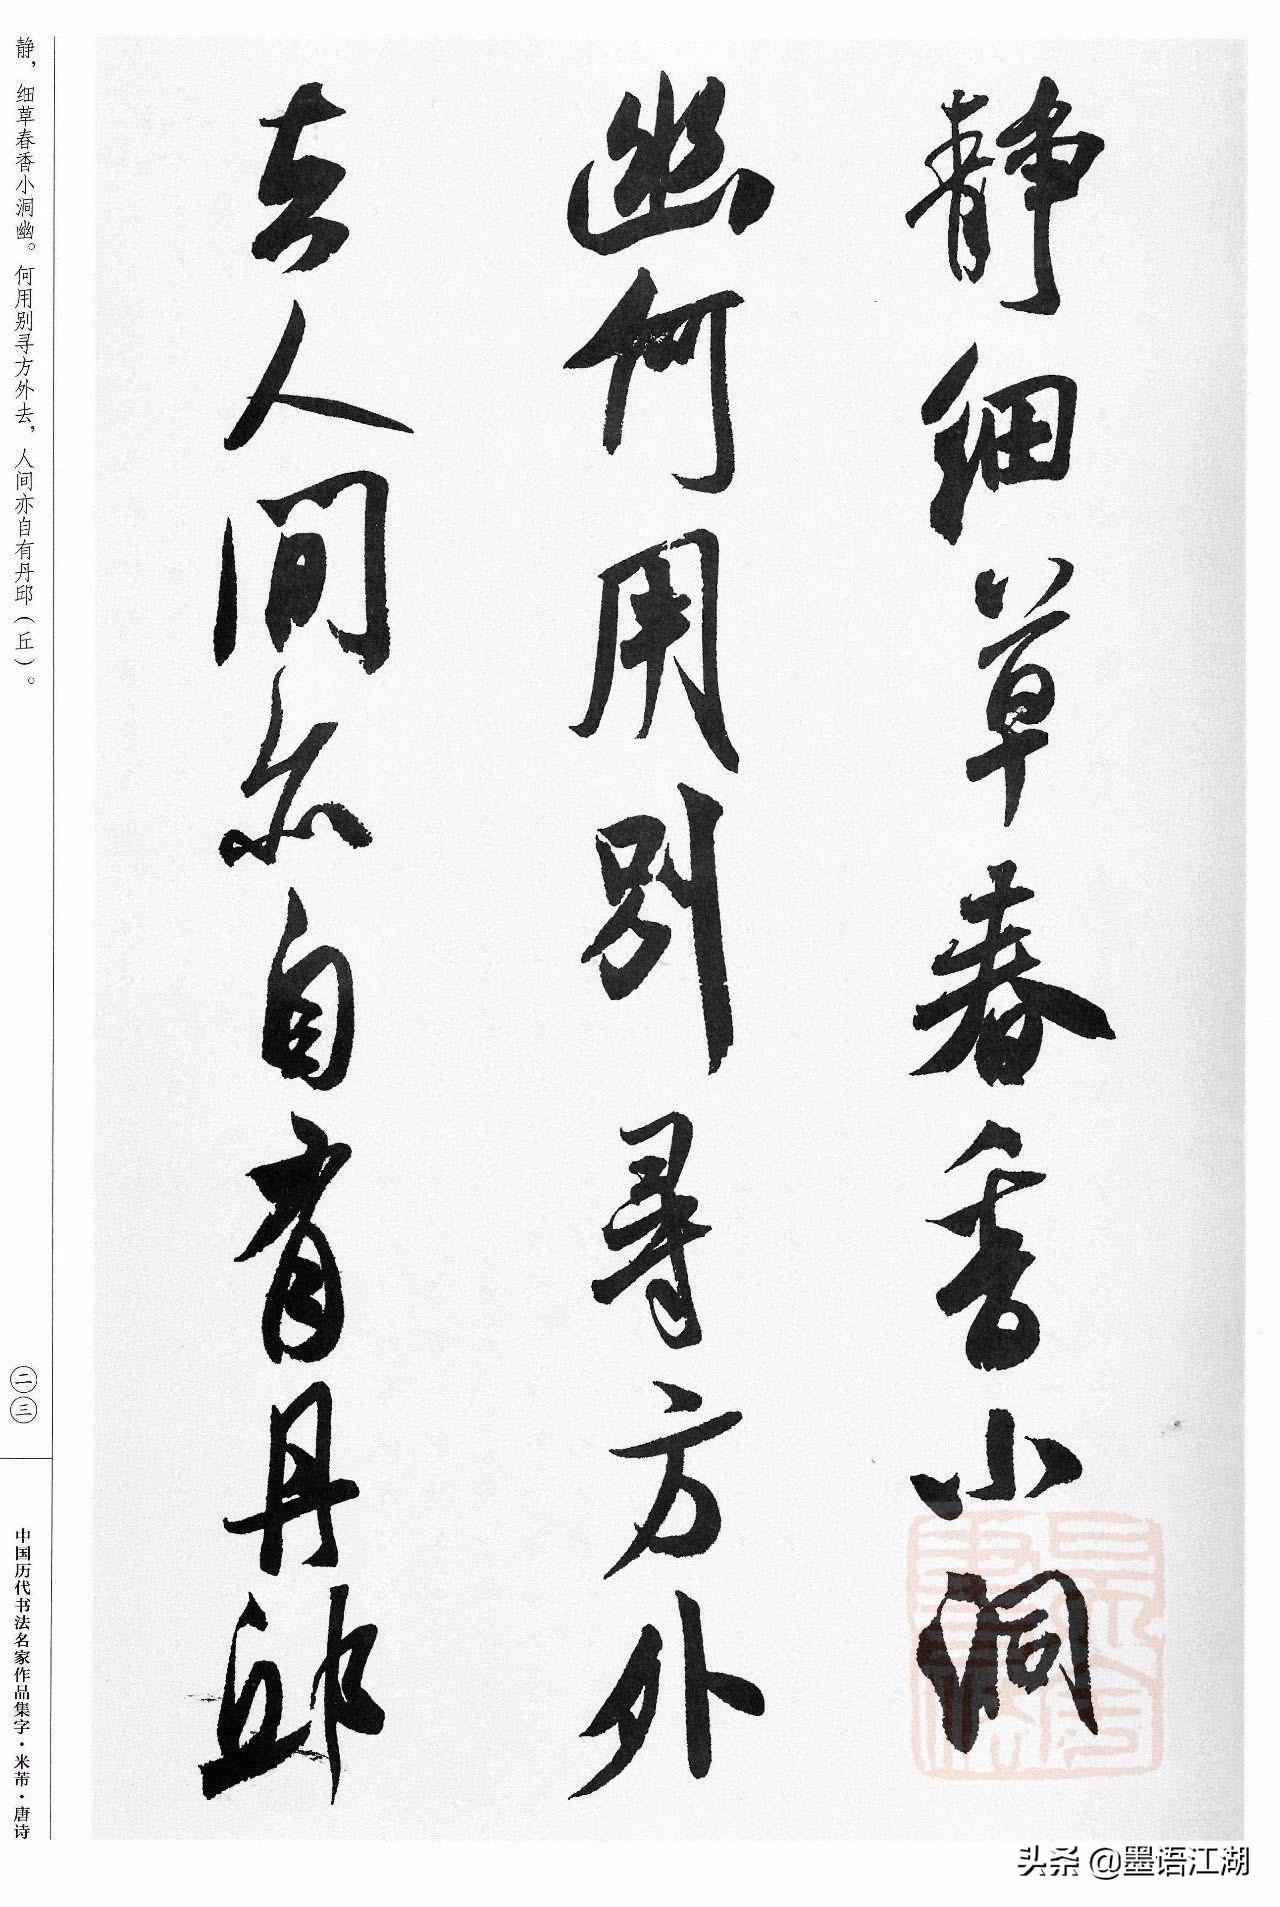 静细草春香小洞
幽何用别寻方外
去人间亦自有丹邱
静，细草春香小洞幽。何用别寻方外去，人间亦自有丹邱（丘）。
二三
中国历代书法名家作品集字·米芾·唐诗
头条 @墨语江湖